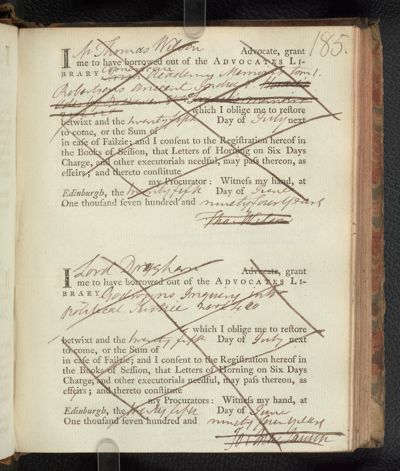 185.
I Mr Thomas Wilson Advocate, grant
me to have borrowed out of the ADVOCATES LI-
BRARY American Academy Memoirs Tom 1.
Robertsons Ancient India
which I oblige me to reſtore
betwixt and the twenty fifth Day of July next
to come, or the Sum of
in caſe of Failzie; and I conſent to the Regiſtration hereof in
the Books of Seſſion, that Letters of Horning on Six Days
Charge, and other executorials needful, may paſs thereon, as
effeirs; and thereto conſtitute
my Procurator: Witneſs my hand, at
Edinburgh, the twenty fifth Day of June
One thouſand ſeven hundred and ninety four years
Tho: Wilson
I Lord Dreghorn Advocate, grant
me to have borrowed out of the ADVOCATES LI-
BRARY Godwins Inquiry into
Political Justice
which I oblige me to reſtore
betwixt and the twenty fifth Day of July next
to come, or the Sum of
in caſe of Failzie; and I conſent to the Regiſtration hereof in
the Books of Seſſion, that Letters of Horning on Six Days
Charge, and other executorials needful, may paſs thereon, as
effeirs; and thereto conſtitute
my Procurators: Witneſs my hand, at
Edinburgh, the twenty fifth Day of June
One thouſand ſeven hundred and ninety four years